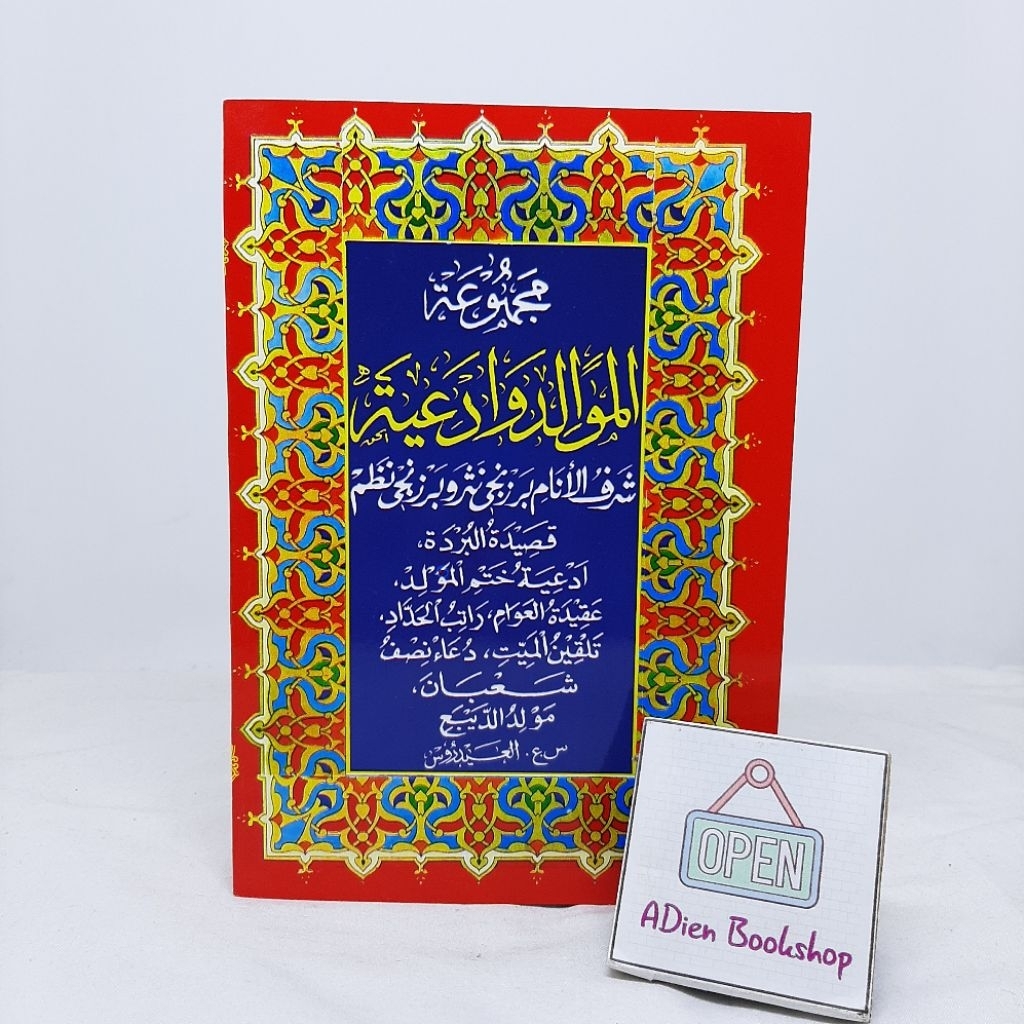 مَجْمُوْعَة
المَوَالِد وَادْعِيَة
شَرَفُ الأَنَام بَرْزَنْجِى نَثْر وَبَرْزَنْجِى نَظْم
قَصِيْدَةُ البُرْدَة،
اَدْعِيَةُ خَتْمِ اْلمَوْلِدْ،
عَقِيْدَةُ العَوَامِ، رَاتِبُ اْلحَدَّادِ،
تَلْقِيْنُ اْلمَيِّتِ، دُعَاءْ نِصْفُ
شَعْبَانَ،
مَوْلِدُ الدِّيبَعِ
س . ع . العَيْدَرُوْسْ
OPEN
ADien Bookshop